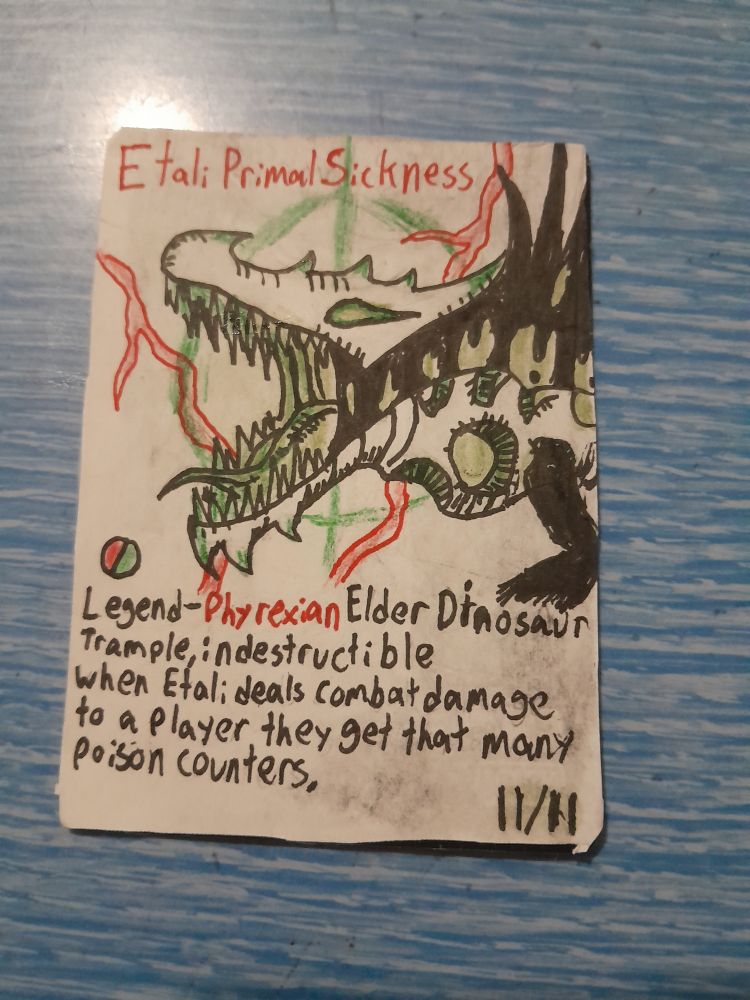 Etali Primal Sickness
Legend-Phyrexian Elder Dinosaur
Trample, indestructible
when Etali deals combat damage
to a player they get that many
poison counters.
11/11